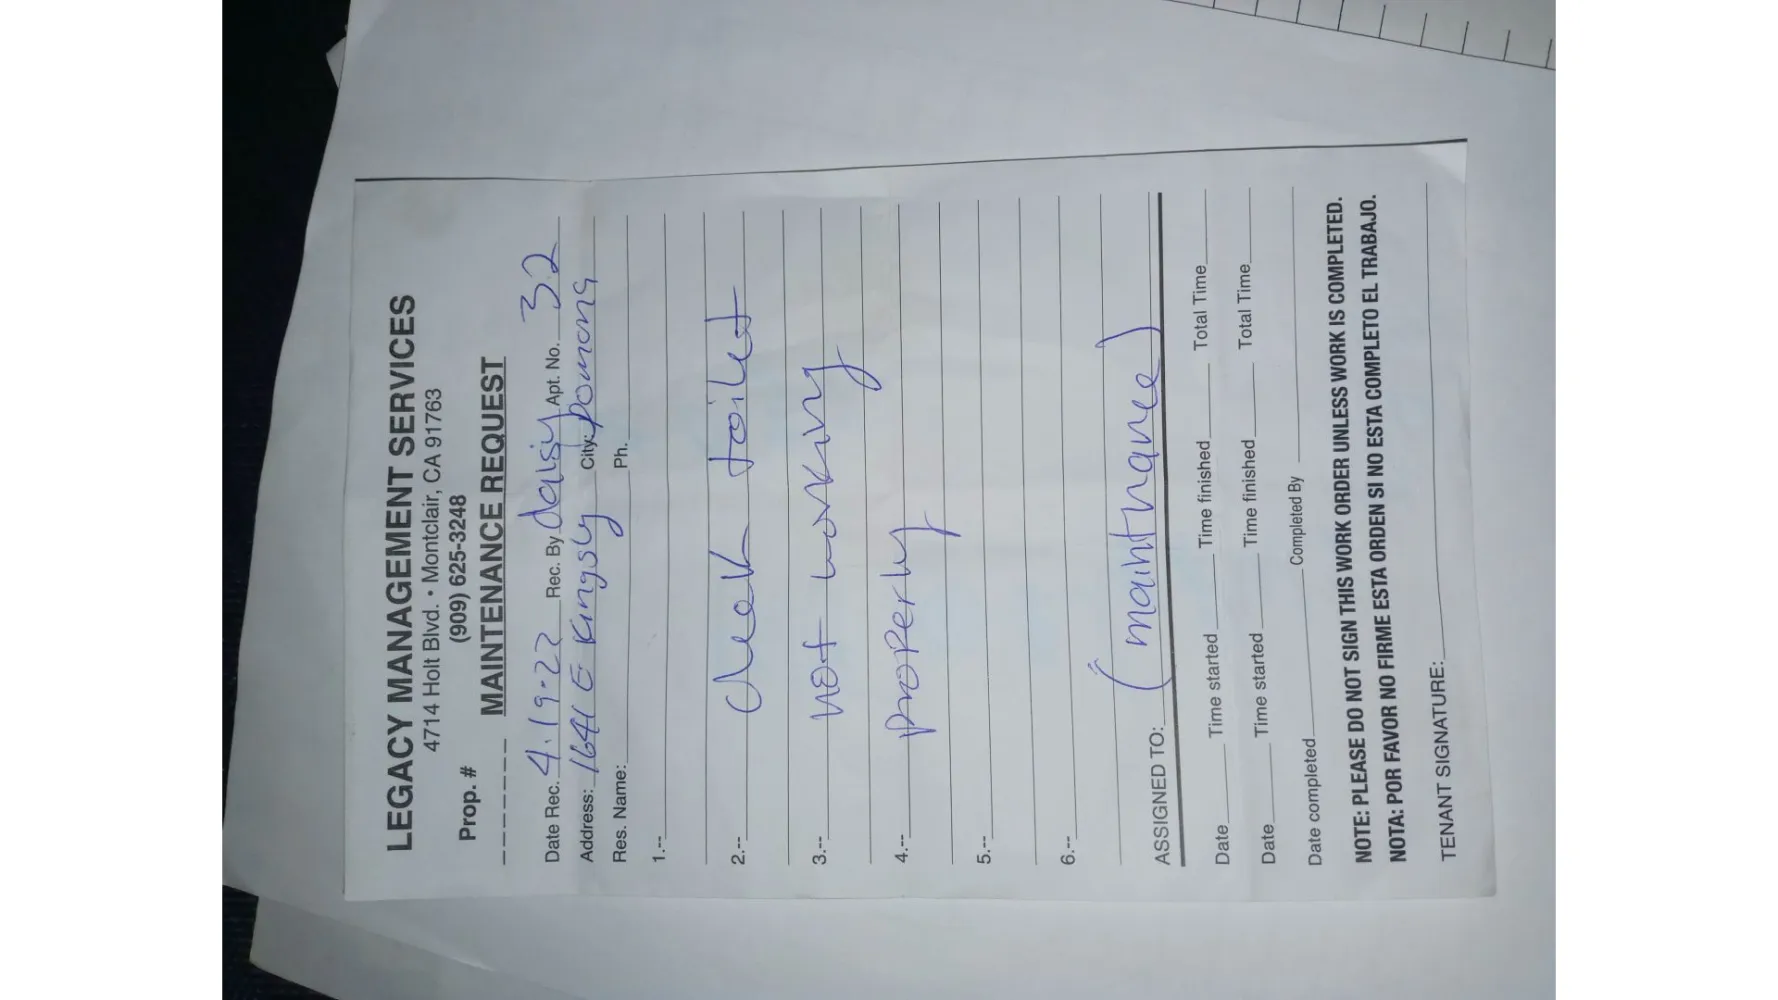 LEGACY MANAGEMENT SERVICES
4714 Holt Blvd. • Montclair, CA 91763
(909) 625-3248
Prop. #
MAINTENANCE REQUEST
Date Rec. 4.19.22 Rec. By daisy Apt. No. 32
Address: 1641 E Kingsly City: Pomona
Res. Name: Ph.
1.--
2.-- chek toilet
3.-- not working
4.-- properly
5.--
6.--
ASSIGNED TO: (mainthane)
Date Time started Time finished Total Time
Date Time started Time finished Total Time
Date completed Completed By
NOTE: PLEASE DO NOT SIGN THIS WORK ORDER UNLESS WORK IS COMPLETED.
NOTA: POR FAVOR NO FIRME ESTA ORDEN SI NO ESTA COMPLETO EL TRABAJO.
TENANT SIGNATURE: